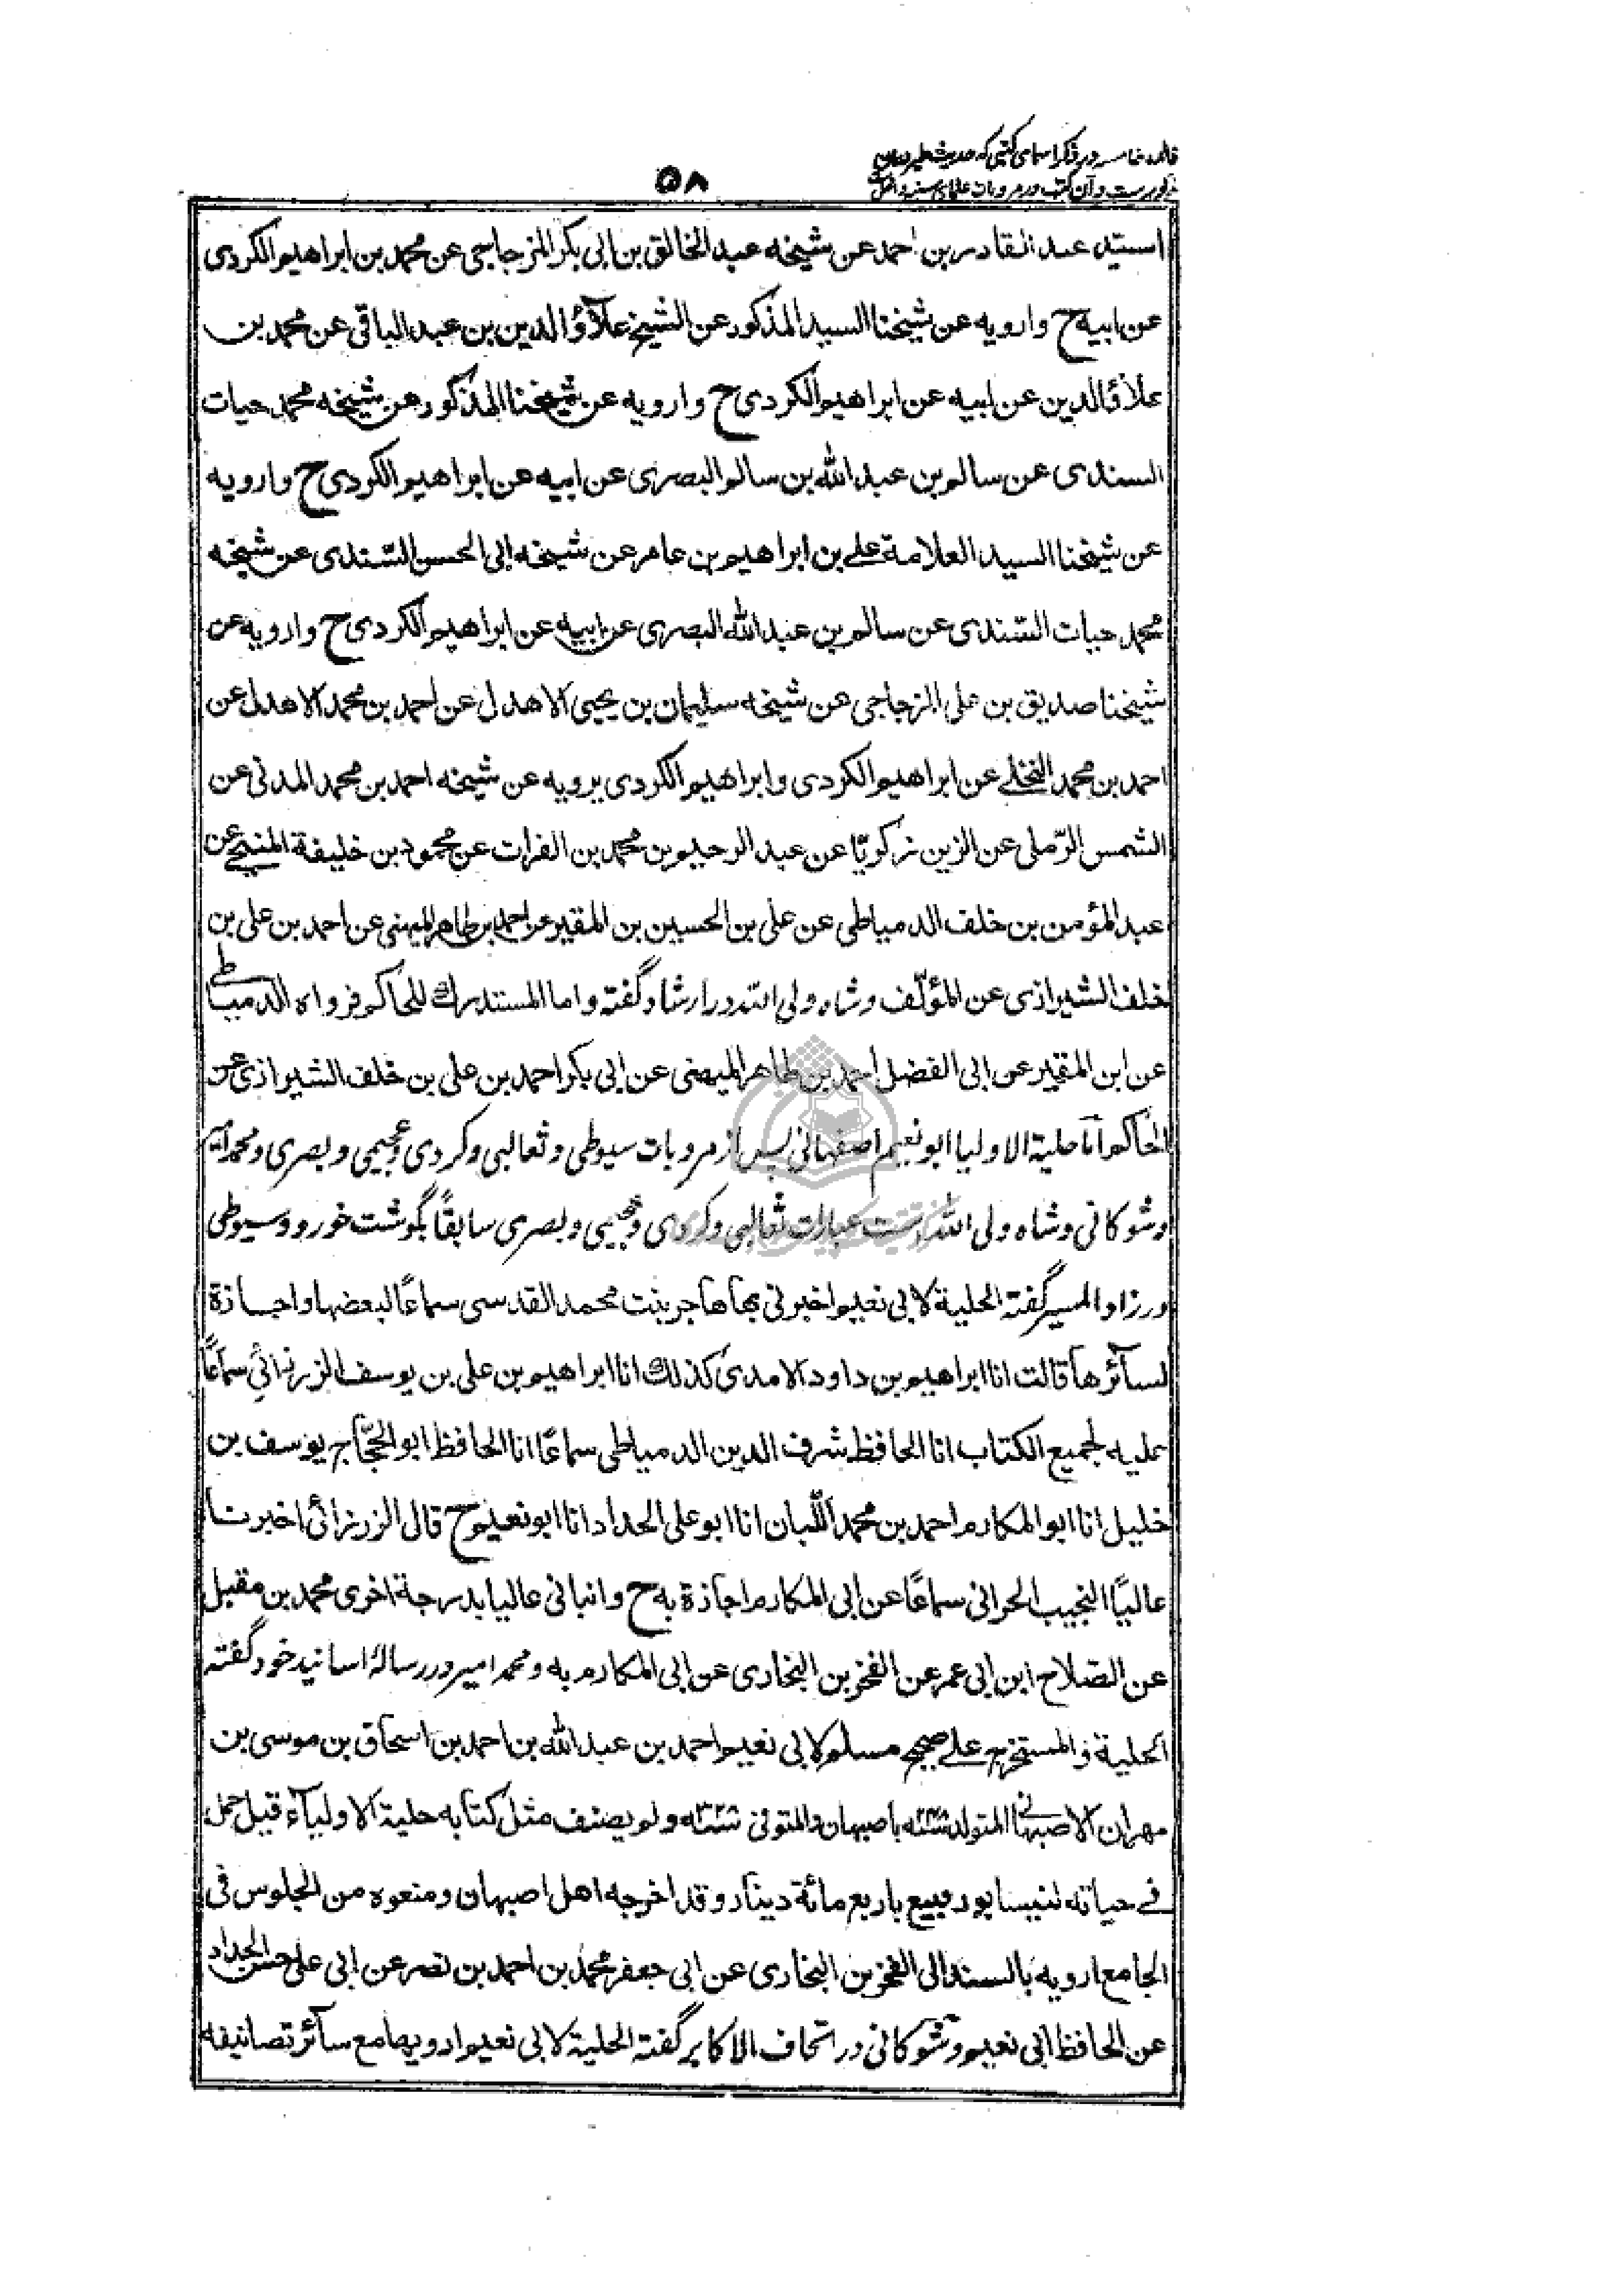 فائده خامسه در ذکر اسامی کتبی که حدیث طیر دران
مذکورست و آن کتب در مرویات علمای سنیه داخل
۵۸
السید عبد القادر بن احمد عن شیخه عبد الخالق بن ابی بکر المزجاجی عن محمد بن ابراهیم الکردی
عن ابیه ح وارویه عن شیخنا السید المذکور عن الشیخ علآؤ الدین بن عبد الباقی عن محمد بن
علاؤ الدین عن ابیه عن ابراهیم الکردی ح وارویه عن شیخنا المذکور عن شیخه محمد حیات
السندی عن سالم بن عبد الله بن سالم البصری عن ابیه عن ابراهیم الکردی ح وارویه
عن شیخنا السید العلامة علی بن ابراهیم بن عامر عن شیخه ابی الحسن السّندی عن شیخه
محمد حیات السّندی عن سالم بن عبد الله البصری عن ابیه عن ابراهیم الکردی ح وارویه عن
شیخنا صدیق بن علی المزجاجی عن شیخه سلیمان بن یحیی الاهدل عن احمد بن محمد الاهدل عن
احمد بن محمد النخلے عن ابراهیم الکردی وابراهیم الکردی یرویه عن شیخه احمد بن محمد المدنی عن
الشمس الرّملی عن الزین زکریّا عن عبد الرحیم بن محمد بن الفرات عن محمود بن خلیفة المنبجے عن
عبد المؤمن بن خلف الدمیاطی عن علی بن الحسین بن المقیر عن احمد بن طاهر المیهنی عن احمد بن علی بن
خلف الشیرازی عن المؤلّف وشاه ولی الله در ارشاد گفته واما المستدرك للحاکم فرواه الدمیاطی
عن ابن المقیر عن ابی الفضل احمد بن طاهر المیهنی عن ابی بکر احمد بن علی بن خلف الشیرازی عن
الحاکم امّا حلیة الاولیا ابو نعیم اصفهانی پس از مرویات سیوطی وثعالبی وکردی وعجیمی وبصری ومحمد امیر
وشوکانی وشاه ولی الله است عبارت ثعالبی وکردی وعجیمی وبصری سابقًا بگوشت خورد وسیوطی
در زاد المسیر گفته الحلیة لابی نعیم اخبرنی بها هاجر بنت محمد القدسی سماعًا لبعضها واجازة
لسآئرها قالت انا ابراهیم بن داود الامدی کذلك انا ابراهیم بن علی بن یوسف الزرزائی سماعًا
علیه لجمیع الکتاب انا الحافظ شرف الدین الدمیاطی سماعًا انا الحافظ ابو الحجّاج یوسف بن
خلیل انا ابو المکارم احمد بن محمد اللّبان انا ابو علی الحداد انا ابو نعیم ح قال الزرزائی اخبرنا
عالیًا النجیب الحرانی سماعًا عن ابی المکارم اجازة به ح وانبانی عالیا بدرجة اخری محمد بن مقبل
عن الصّلاح ابن ابی عمر عن الفخر بن البخاری عن ابی المکارم به ومحمد امیر در رسالۀ اسانید خود گفته
الحلیة والمستخرج علے صحیح مسلم لابی نعیم احمد بن عبد الله بن احمد بن اسحاق بن موسی بن
مهران الاصبهانی المتولد باصبهان والمتوفی ولم یصنف مثل کتابه حلیة الاولیآء قیل حمل
فے حیاته لنیسابور فبیع باربع مائة دینار وقد اخرجه اهل اصبهان ومنعوه من الجلوس فی
الجامع ارویه بالسند الی الفخر بن البخاری عن ابی جعفر محمد بن احمد بن نصر عن ابی علی حسن الحداد
عن الحافظ ابی نعیم وشوکانی در اتحاف الاکابر گفته الحلیة لابی نعیم ارویها مع سآئر تصانیفه